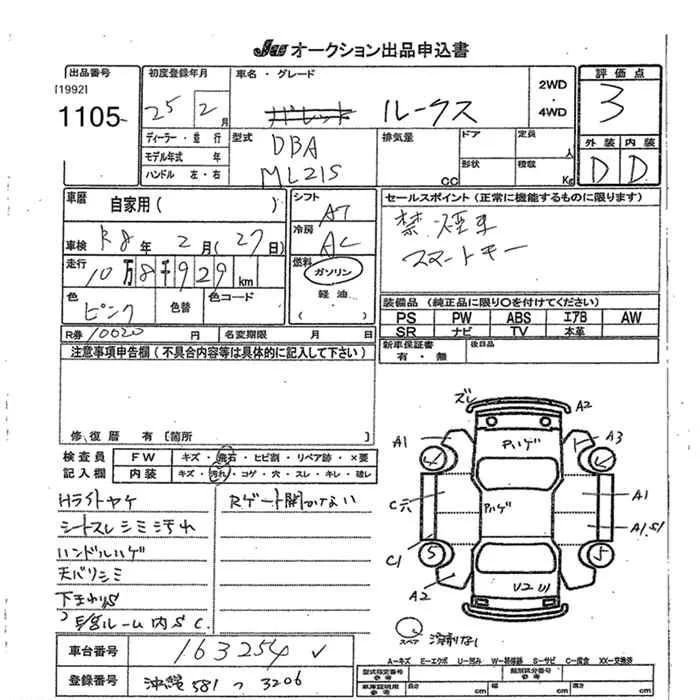 JU オークション出品申込書
出品番号
[1992]
1105
初度登録年月
25 2月
車名・グレード
ルークス
2WD
・
4WD
評価点
3
外装 内装
D D
ディーラー・並行
モデル年式 年
ハンドル 左・右
型式
DBA
ML21S
排気量
CC
ドア
形状
定員
人
積載
Kg
車歴
自家用( )
車検 R8年 2月(27日)
走行
10万8千929km
色
ピンク
色替
色コード
シフト
AT
冷房
AC
燃料
ガソリン
軽油
( )
セールスポイント(正常に機能するものに限ります)
禁煙車
スマートキー
装備品(純正品に限り○を付けてください)
PS PW ABS エアB AW
SR ナビ TV 本革
新車保証書
有・無
後日品
R券 10020 円
名変期限 月 日
注意事項申告欄(不具合内容等は具体的に記入して下さい)
修復歴 有[箇所 ]
検査員
記入欄
FW キズ・飛石・ヒビ割・リペア跡・×要
内装 キズ・汚れ・コゲ・穴・スレ・キレ・破レ
Hライトヤケ
シートスレシミ汚れ
ハンドルハゲ
天バリシミ
下まわりS
エンジンルーム内SC.
Rゲート開かない
ズレ
A2
A1
Pハゲ
A3
C穴
Pハゲ
A1
A1.S1
C1
5
5
A2
U2 U1
スペア
溝割なし
車台番号
163254
登録番号
沖縄 581 つ 3206
A-キズ E-エクボ U-凹み W-補修跡 S-サビ C-腐食 XX-交換済
型式指定番号
類別区分番号
車庫証明
長さ cm
幅 cm
高さ cm